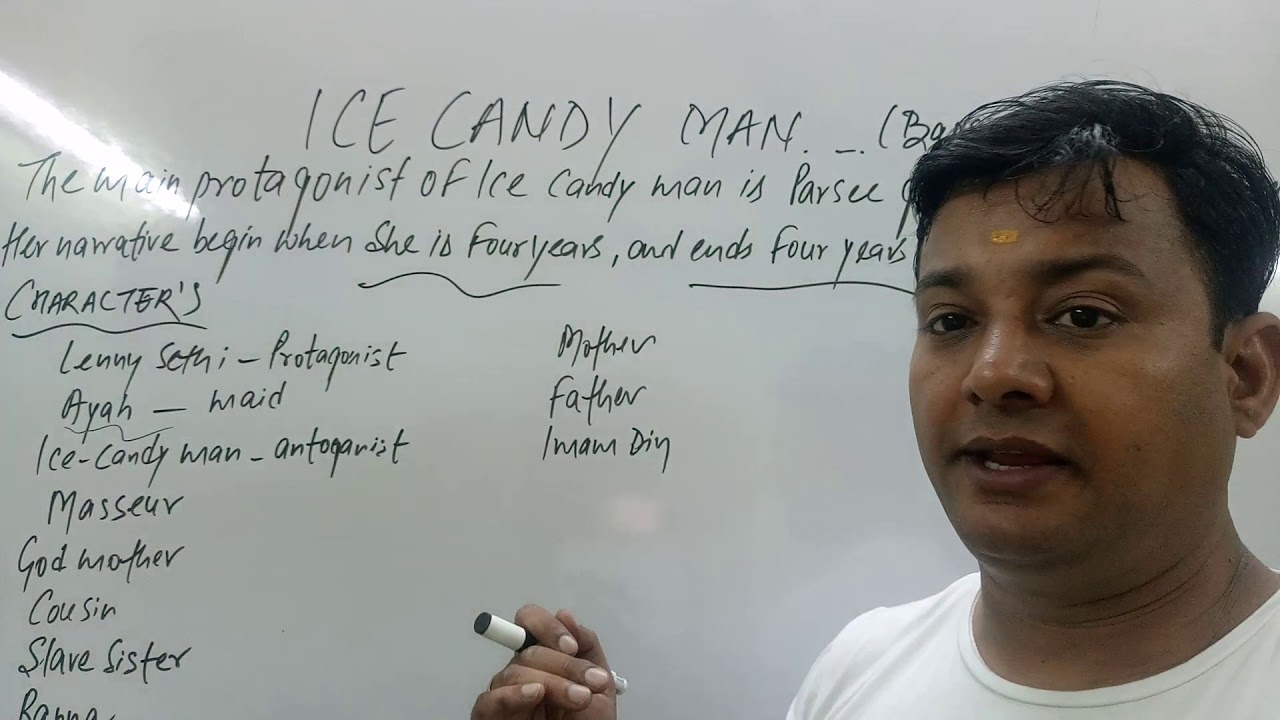 ICE CANDY MAN. -. (Ba
The main protagonist of Ice Candy man is Parsee
Her narrative begin when She is Four years, and ends four years
CHARACTER'S
Lenny Sethi - Protagonist
Ayah - maid
Ice-Candy man - antoganist
Masseur
God mother
Cousin
Slave Sister
Mother
Father
Imam Din